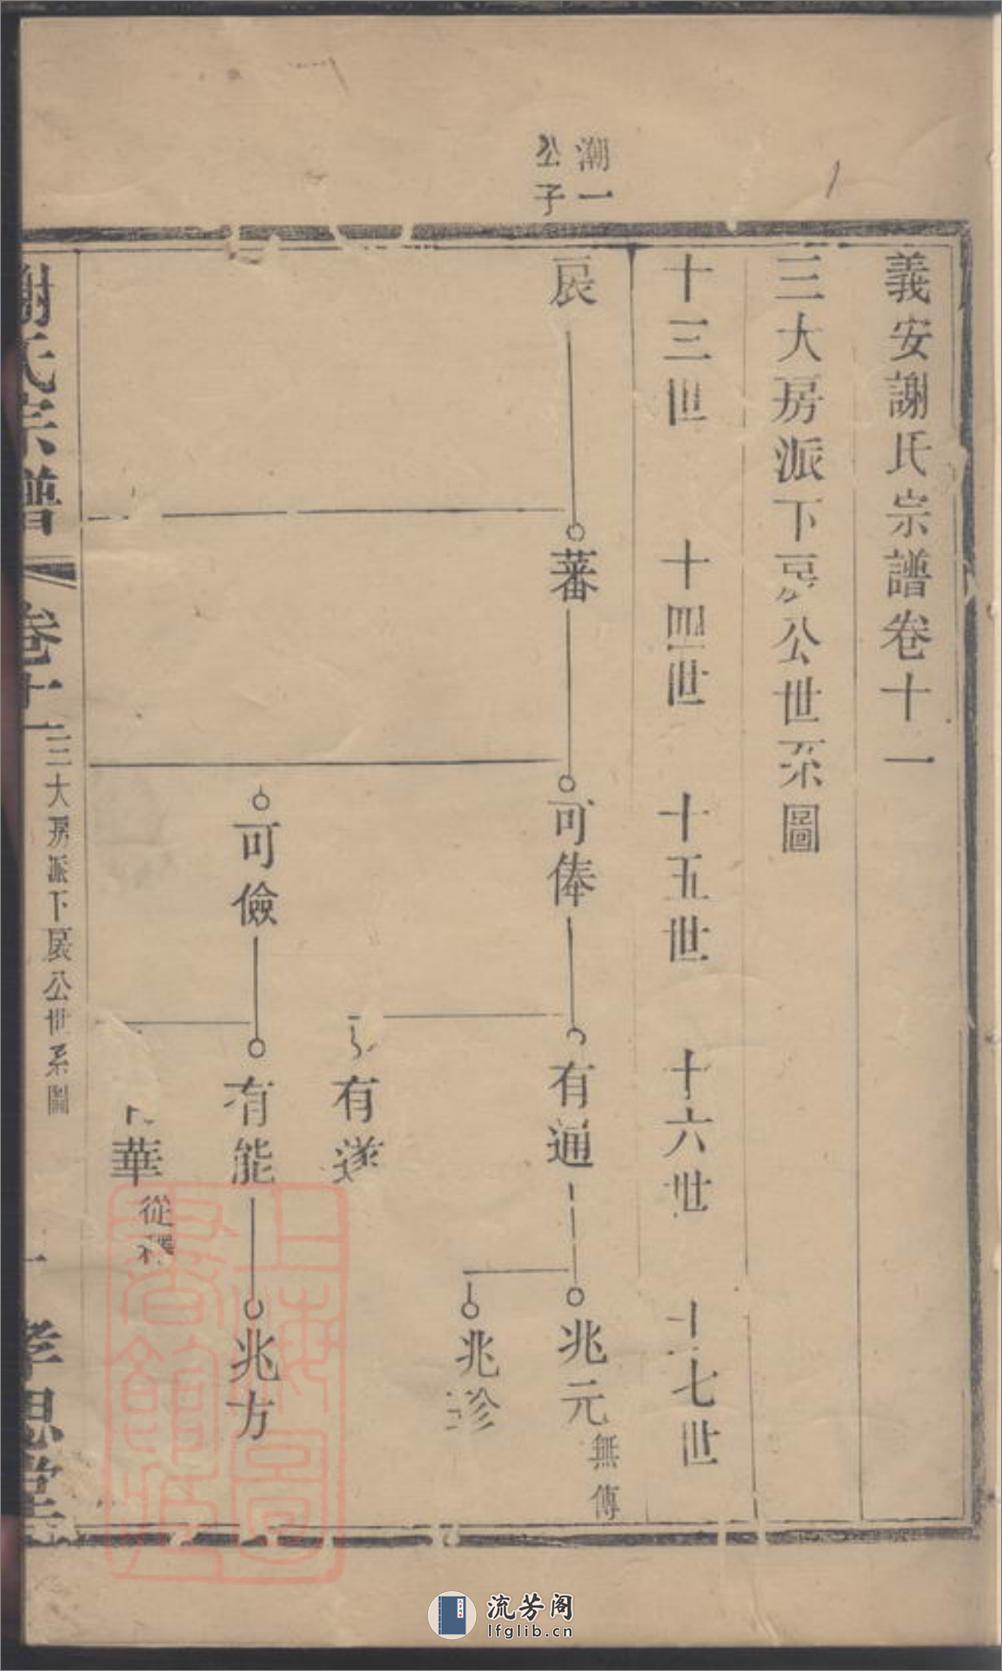 義安謝氏宗譜卷十一
三大房派下㫰公世系圖
十三世 十四世 十五世 十六世 十七世
潮一
公子
蕃
可俸
有通
兆元 無傳
兆珍
有遂
可儉
有能
兆方
華 從
謝氏宗譜 卷十一 三大房派下 公世系圖 一 孝思堂
上海圖書館藏
流芳阁
lfglib.cn